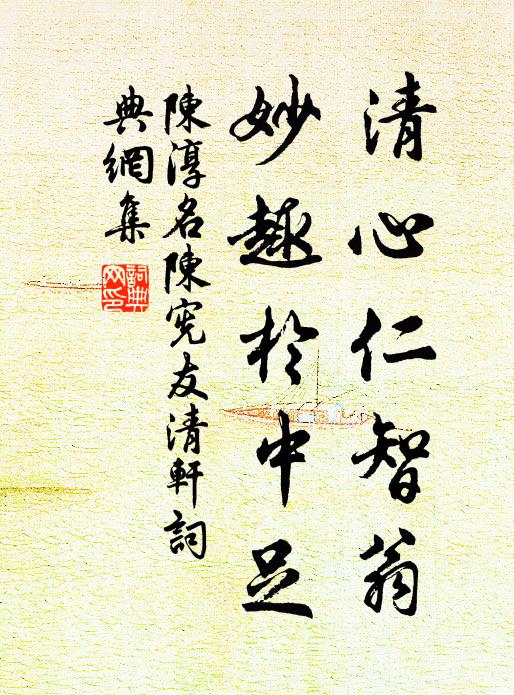 清心仁智翁
妙趣於中足
陳淳名陳憲友清軒詞
典網集
詞典
网印